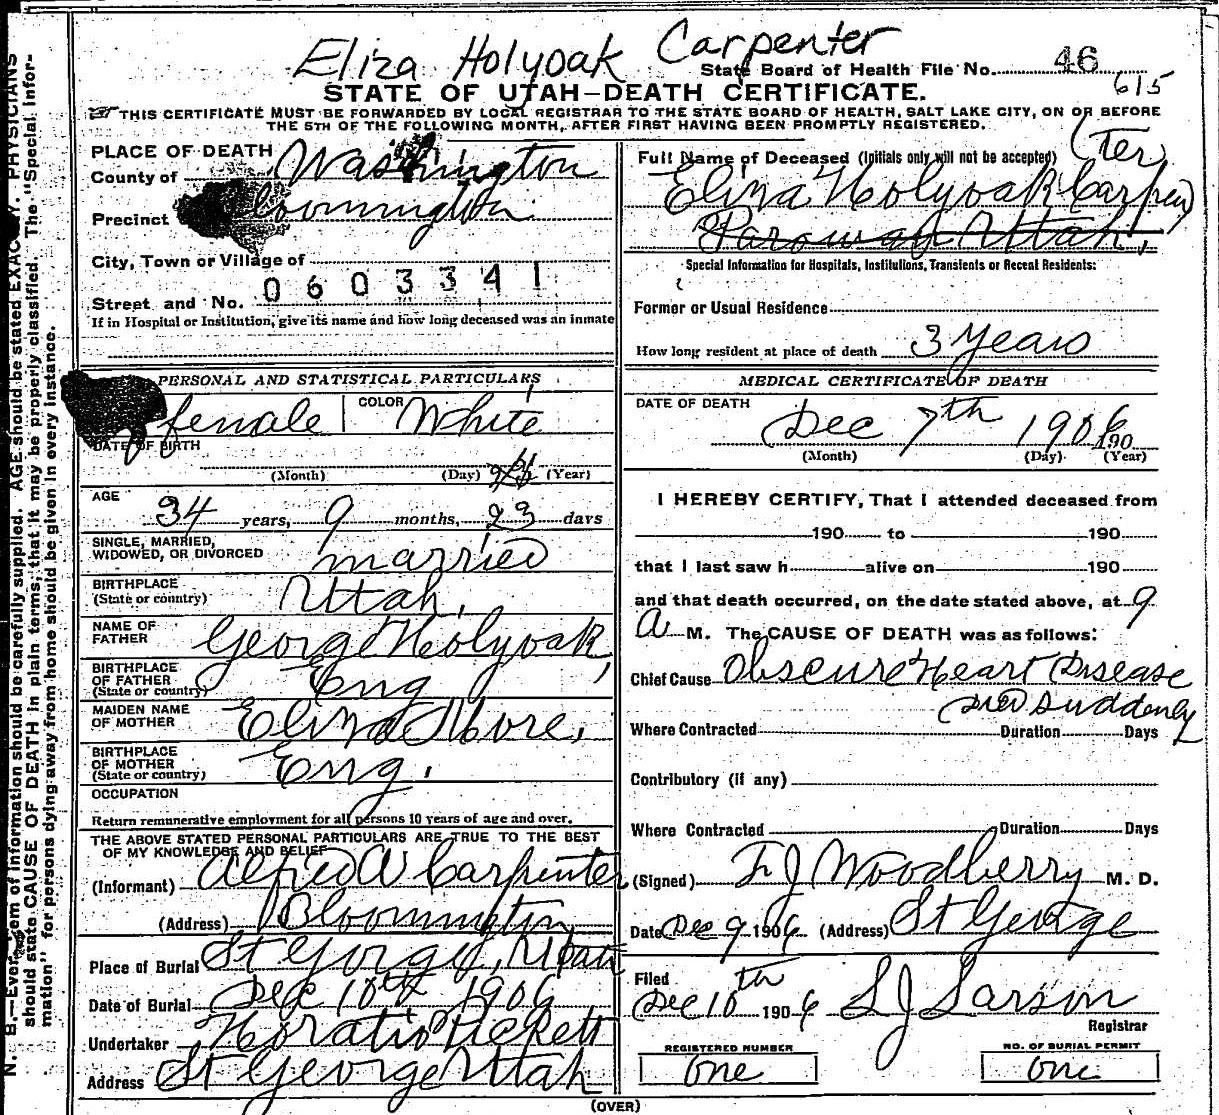 Eliza Holyoak Carpenter
State Board of Health File No. 46
615
STATE OF UTAH—DEATH CERTIFICATE.
THIS CERTIFICATE MUST BE FORWARDED BY LOCAL REGISTRAR TO THE STATE BOARD OF HEALTH, SALT LAKE CITY, ON OR BEFORE
THE 5TH OF THE FOLLOWING MONTH, AFTER FIRST HAVING BEEN PROMPTLY REGISTERED.
PLACE OF DEATH
County of Washington
Precinct Bloomington
City, Town or Village of
0603341
Street and No.
If in Hospital or Institution, give its name and how long deceased was an inmate
PERSONAL AND STATISTICAL PARTICULARS
female COLOR White
DATE OF BIRTH
(Month) (Day) (Year)
AGE
34 years, 9 months, 23 days
SINGLE, MARRIED,
WIDOWED, OR DIVORCED married
BIRTHPLACE
(State or country) Utah,
NAME OF
FATHER George Holyoak,
BIRTHPLACE
OF FATHER
(State or country) Eng
MAIDEN NAME
OF MOTHER Eliza More,
BIRTHPLACE
OF MOTHER
(State or country) Eng.
OCCUPATION
Return remunerative employment for all persons 10 years of age and over.
THE ABOVE STATED PERSONAL PARTICULARS ARE TRUE TO THE BEST
OF MY KNOWLEDGE AND BELIEF
(Informant) Alfred A Carpenter
(Address) Bloomington
Place of Burial St George, Utah
Date of Burial Dec 10th 1906
Undertaker Horatio Pickett
Address St George Utah
Full Name of Deceased (Initials only will not be accepted)
Eliza Holyoak Carpen(ter)
Parowan Utah,
Special Information for Hospitals, Institutions, Transients or Recent Residents:
Former or Usual Residence
How long resident at place of death 3 years
MEDICAL CERTIFICATE OF DEATH
DATE OF DEATH
Dec 7th 1906 190
(Month) (Day) (Year)
I HEREBY CERTIFY, That I attended deceased from
190 to 190
that I last saw h alive on 190
and that death occurred, on the date stated above, at 9
A M. The CAUSE OF DEATH was as follows:
Chief Cause Obscure Heart Disease
Died Suddenly
Where Contracted Duration Days
Contributory (if any)
Where Contracted Duration Days
(Signed) F J Woodberry M. D.
Date Dec 9 1906 (Address) St George
Filed
Dec 10th 1906 S J Larson
Registrar
REGISTERED NUMBER NO. OF BURIAL PERMIT
One One
(OVER)
N. B.—Every item of information should be carefully supplied. AGE should be stated EXACTLY. PHYSICIANS
should state CAUSE OF DEATH in plain terms, that it may be properly classified. The "Special Infor-
mation" for persons dying away from home should be given in every instance.